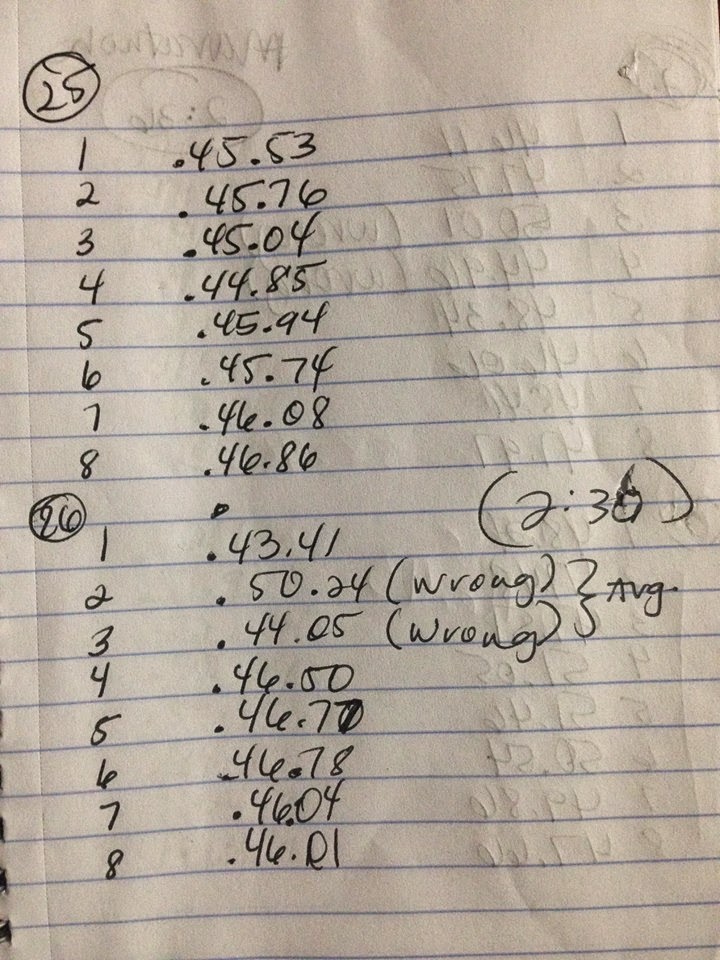 25
1 .45.53
2 .45.76
3 .45.04
4 .44.85
5 .45.94
6 .45.74
7 .46.08
8 .46.86
26 (2:30)
1 .43.41
2 .50.24 (wrong) } Avg.
3 .44.05 (wrong)
4 .46.50
5 .46.70
6 .46.78
7 .46.04
8 .46.01